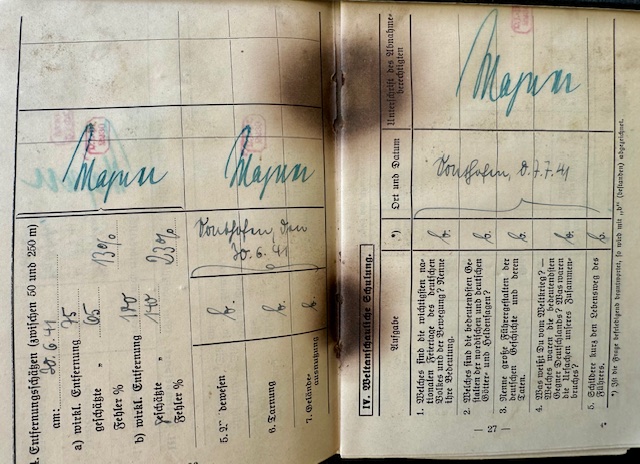 4. Entfernungsschätzen (zwischen 50 und 250 m)
am: 30.6.41
a) wirkl. Entfernung 75
geschätzte " 65
Fehler % 13%
b) wirkl. Entfernung 180
geschätzte " 140
Fehler % 23%
Majuru
5.
6. Tarnung b.
7. Gelände-
ausnutzung b.
Sonthofen, den
30.6.41
IV. Weltanschauliche Schulung.
Aufgabe
*)
Ort und Datum
Unterschrift des Abnahme-
berechtigten
1. Welches sind die wichtigsten na-
tionalen Feiertage des deutschen
Volkes und der Bewegung? Nenne
ihre Bedeutung.
b.
2. Welches sind die bedeutendsten Ge-
stalten der nordischen und deutschen
Götter- und Heldensagen?
b.
3. Nenne große Führergestalten der
deutschen Geschichte und deren
Taten.
b.
4. Was weißt Du vom Weltkrieg? —
Welches waren die bedeutendsten
Gegner Deutschlands? Was waren
die Ursachen unseres Zusammen-
bruches?
b.
5. Schildere kurz den Lebensweg des
Führers.
b.
Sonthofen, d. 7.7.41
*) Ist die Frage befriedigend beantwortet, so wird mit „b“ (bestanden) abgezeichnet.
— 27 —